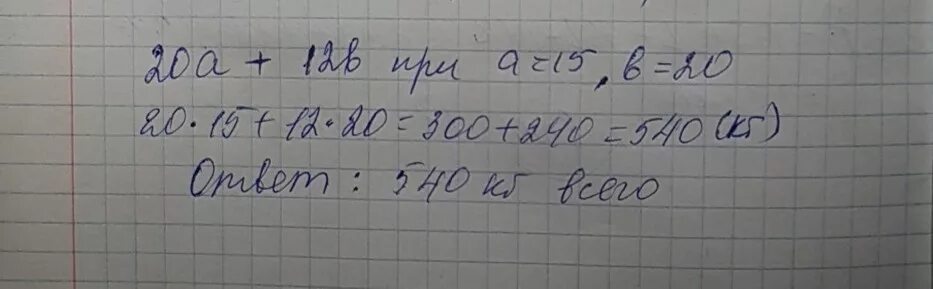 20a + 12b при a=15, b=20
20·15+12·20=300+240=540 (кг)
Ответ: 540 кг всего